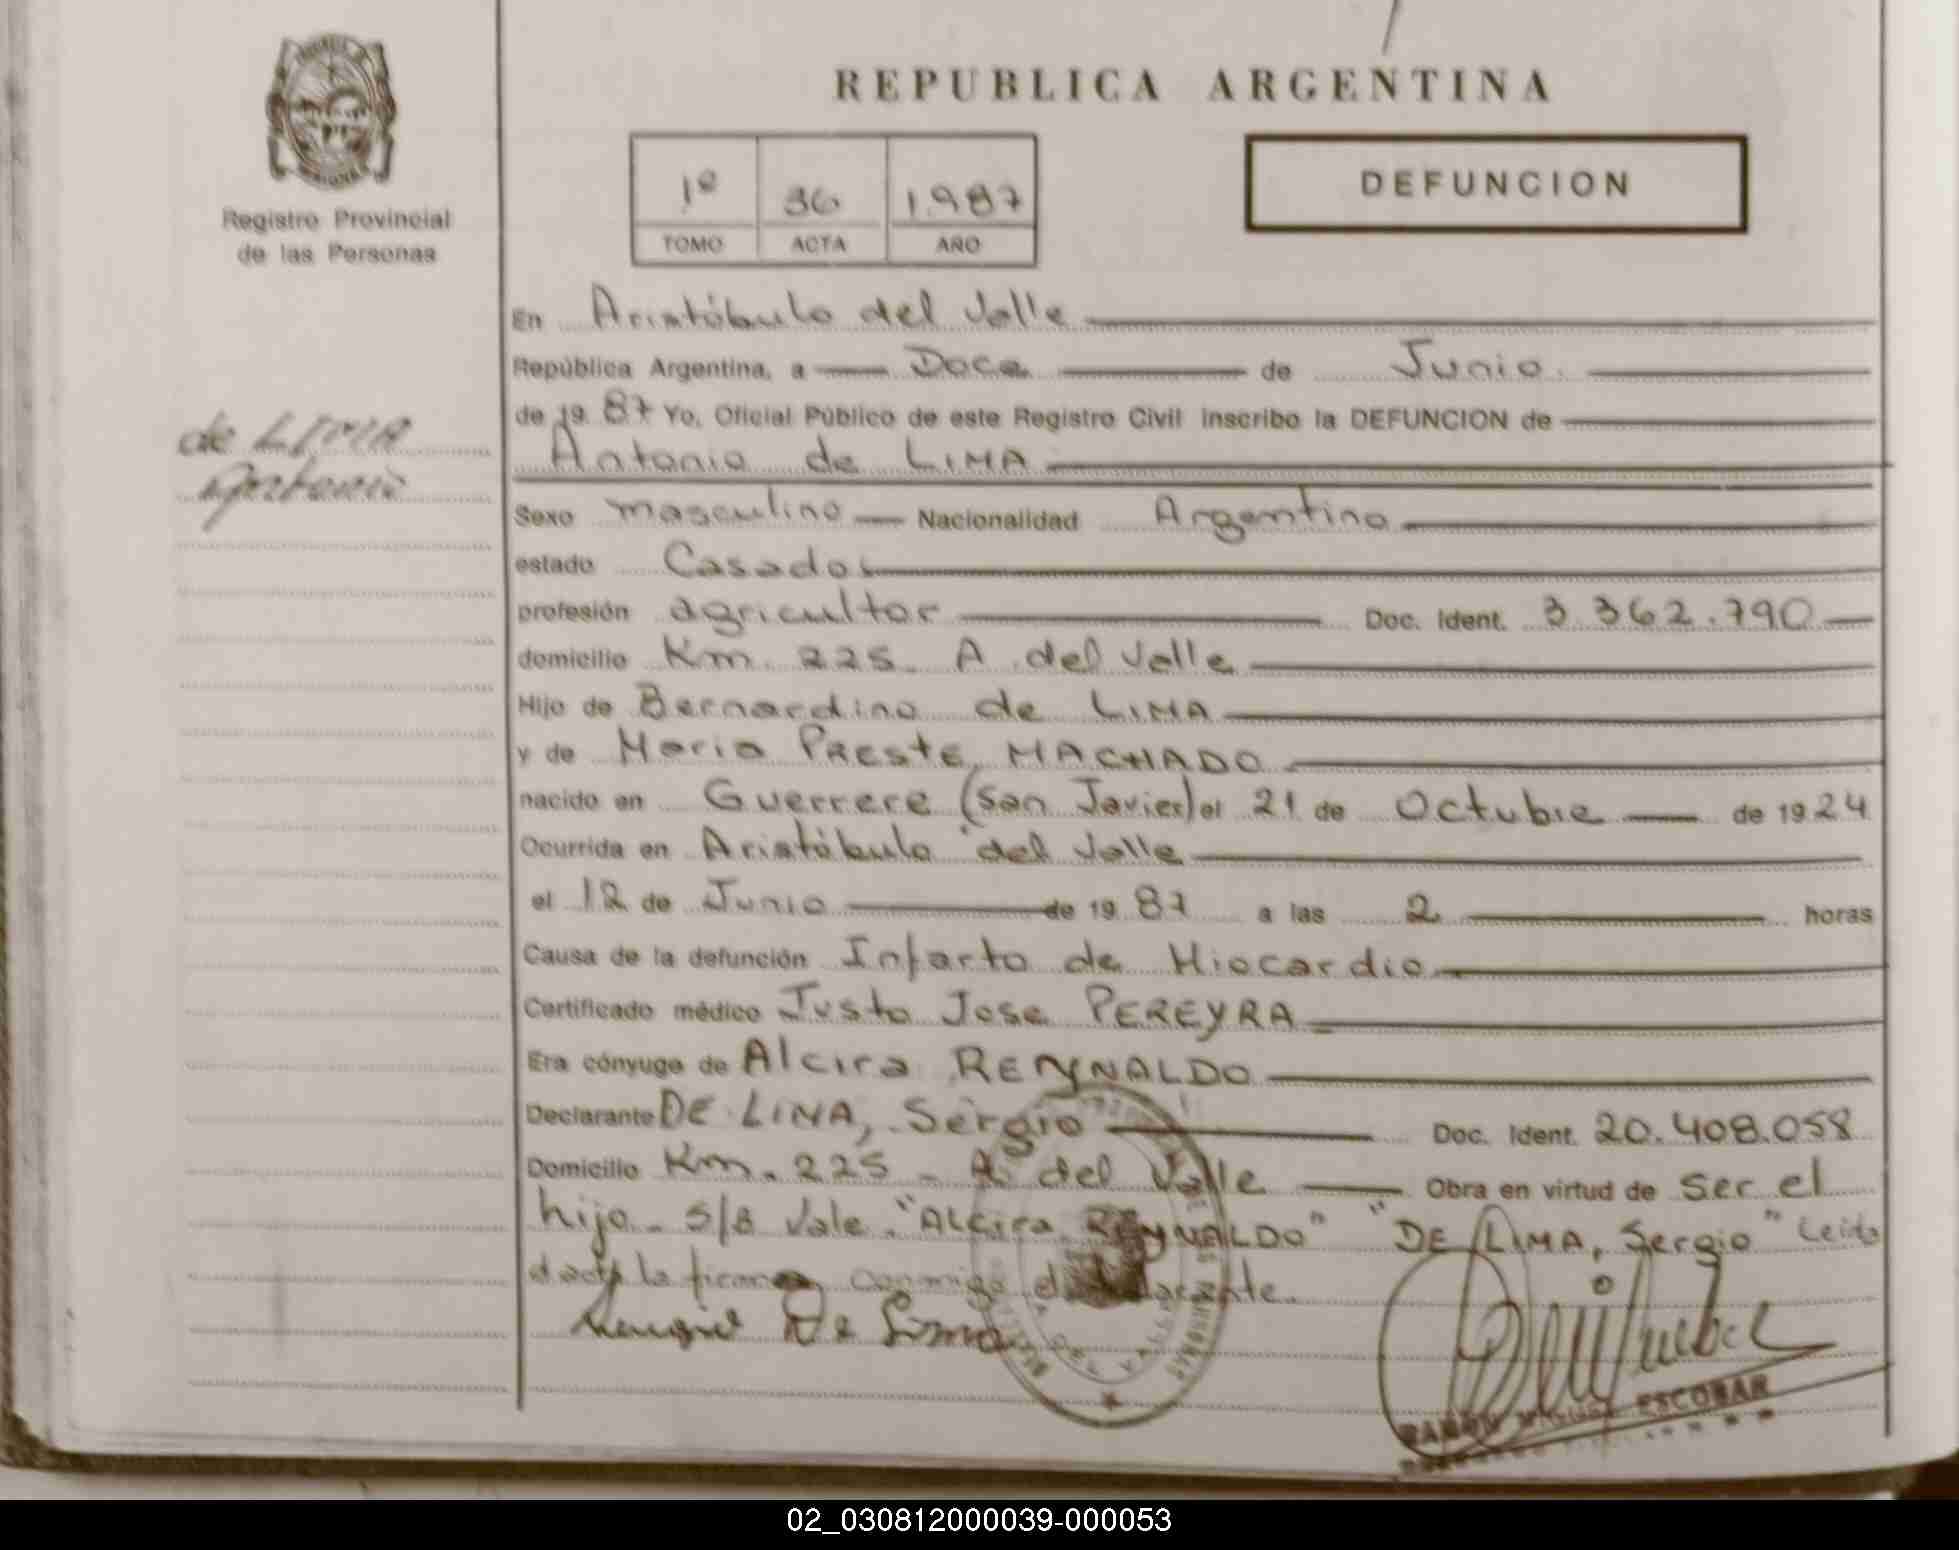 REPUBLICA ARGENTINA
Registro Provincial
de las Personas
1º 36 1.987
TOMO ACTA AÑO
DEFUNCION
de LIMA
Antonio
En Aristóbulo del Valle
República Argentina, a Doce de Junio
de 19 87 Yo, Oficial Público de este Registro Civil inscribo la DEFUNCION de
Antonio de LIMA
Sexo masculino Nacionalidad Argentino
estado Casado
profesión agricultor Doc. Ident. 3.362.790
domicilio Km. 225. A. del Valle
Hijo de Bernardino de LIMA
y de Maria PRESTE MACHADO
nacido en Guerrere (San Javier) el 21 de Octubre de 19 24
Ocurrida en Aristóbulo del Valle
el 12 de Junio de 19 87 a las 2 horas
Causa de la defunción Infarto de Miocardio
Certificado médico Justo Jose PEREYRA
Era cónyuge de Alcira REYNALDO
Declarante DE LIMA, Sergio Doc. Ident. 20.408.058
Domicilio Km. 225 - A. del Valle Obra en virtud de ser el
hijo. S/B Vale. "Alcira REYNALDO" "DE LIMA, Sergio" Leida
el acta la firma conmigo el declarante.
De Lima
ESCOBAR
02_030812000039-000053